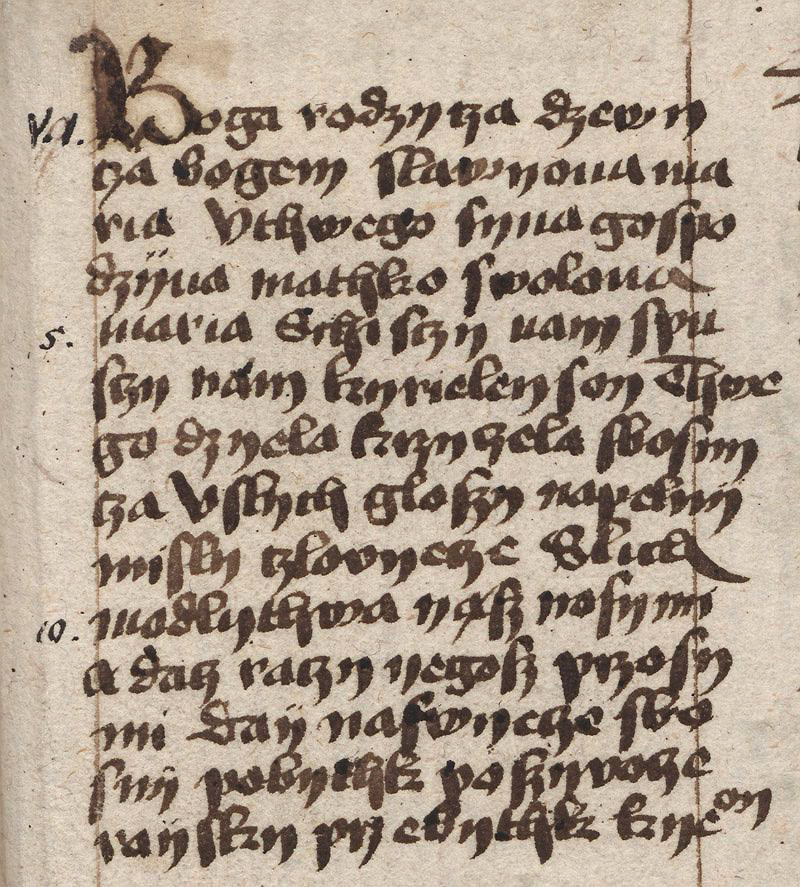 Va. Boga rodzycza dzewy
cza bogem slawyona ma
ria Vthwego syna gospo
dzijna mathko swolona
5. maria Sczisczy nam spu
sczy nam kyrieleyson Thwe
go dzyela krzyczela sbosim
cza Vslych glossy napelny
misly czlowyecze Slich
10. modlythwa yąsz nosymi
A dacz raczy yegosz prosy
mi daij naswyecze sbo
sny pobyth posziwocze
raijsky przebyth kyeon